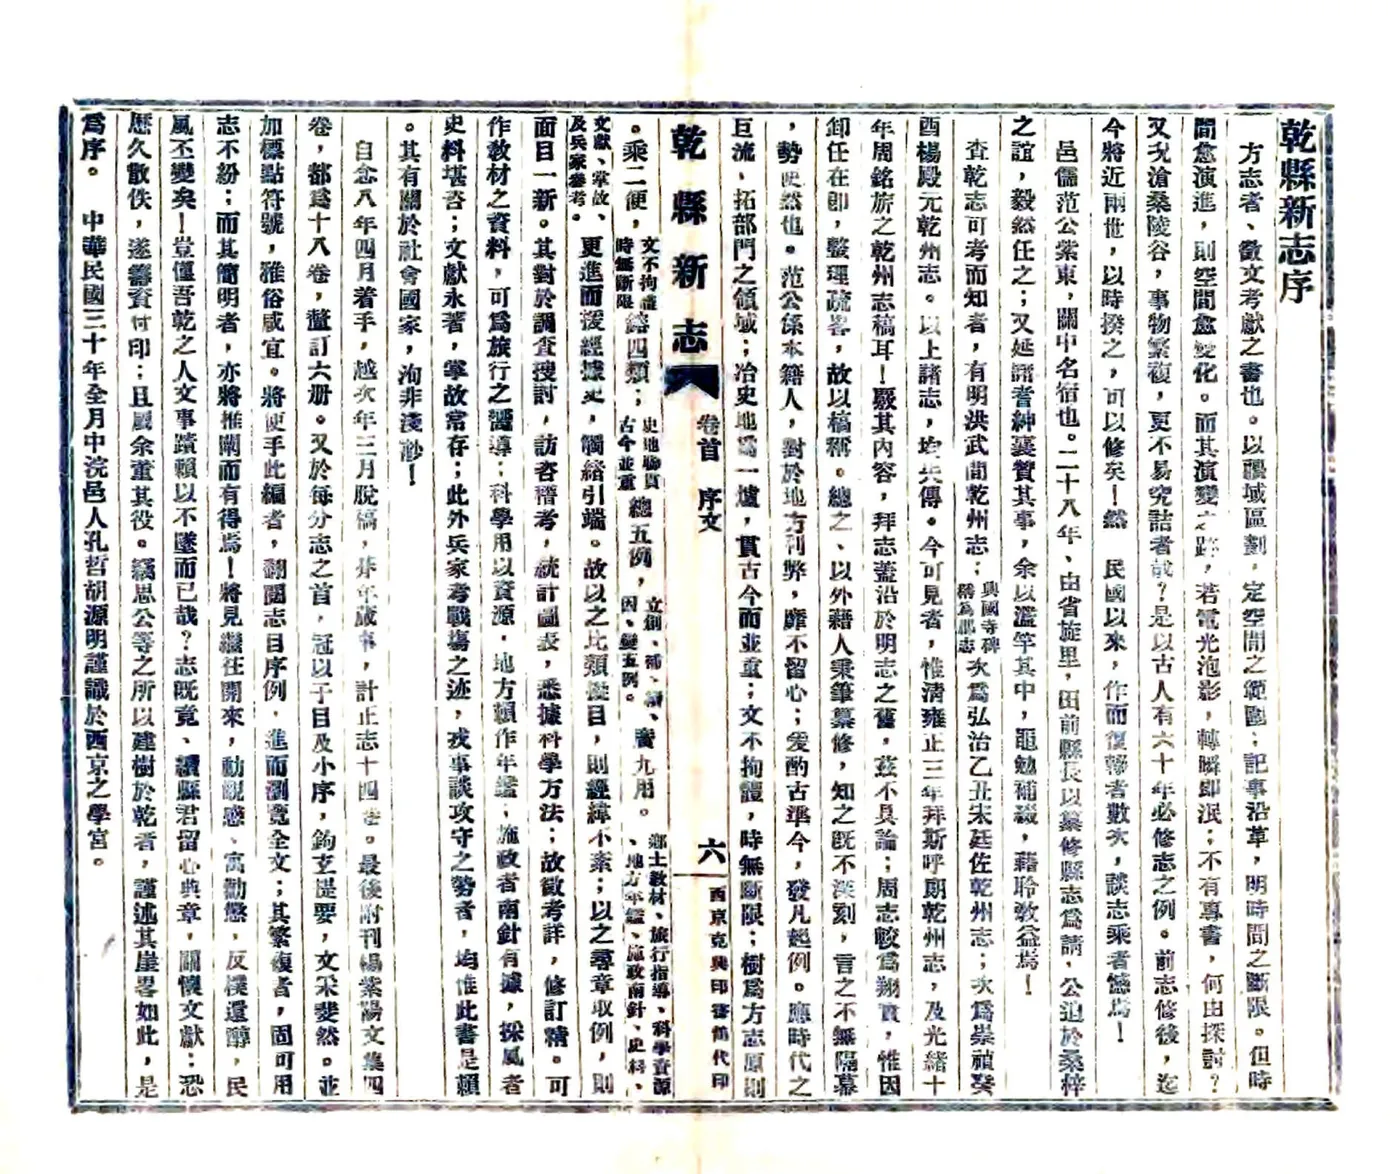 乾縣新志序
方志者、徵文考獻之書也。以疆域區劃，定空間之範圍；記事沿革，明時間之斷限。但時
間愈演進，則空間愈變化。而其演變之跡，若電光泡影，轉瞬即泯；不有專書，何由探討？
又況滄桑陵谷，事物繁複，更不易究詰者哉？是以古人有六十年必修志之例。前志修後，迄
今將近兩世，以時揆之，可以修矣！然　民國以來，作而復輟者數次，談志乘者憾焉！
邑儒范公紫東，關中名宿也。二十八年、由省旋里，田前縣長以纂修縣志爲請，公迫於桑梓
之誼，毅然任之；又延諸耆紳襄贊其事，余以濫竽其中，黽勉補綴，藉聆教益焉！
查乾志可考而知者，有明洪武間乾州志；興國寺碑稱爲郡志次爲弘治乙丑末廷佐乾州志；次爲崇禎癸
酉楊殿元乾州志。以上諸志，均失傳。今可見者，惟清雍正三年拜斯呼朗乾州志，及光緒十
年周銘旂之乾州志稿耳！覈其內容，拜志蓋沿於明志之舊，茲不具論；周志較爲翔實，惟因
卸任在即，整理疏畧，故以稿稱。總之、以外籍人秉筆纂修，知之既不深刻，言之不無隔幕
，勢使然也。范公係本籍人，對於地方利弊，靡不留心；爰酌古準今，發凡起例。應時代之
巨流、拓部門之領域；冶史地爲一爐，貫古今而並重；文不拘體，時無斷限；樹爲方志原則
乾縣新志　卷首　序文　六　西京克興印書館代印
。乘二便，文不拘體時無斷限鎔四類；史地聯貫古今並重總五例，立創、補、續、因、變五例。廣九用。鄉土教材、旅行指導、科學資源、地方年鑑、施政南針、史料、
文獻、掌故、及兵家參考。更進而援經據史，觸緒引端。故以之比類從目，則經緯不紊；以之尋章取例，則
面目一新。其對於調查搜討，訪咨稽考，統計圖表，悉據科學方法；故徵考詳，修訂精。可
作教材之資料，可爲旅行之嚮導；科學用以資源，地方賴作年鑑，施政者南針有據，採風者
史料堪咨；文獻永著，掌故常存；此外兵家考戰塲之迹，戎事談攻守之勢者，均惟此書是賴
。其有關於社會國家，洵非淺尠！
自念八年四月着手，越次年三月脫稿，朞年蕆事，計正志十四卷。最後附刊楊紫陽文集四
卷，都爲十八卷，釐訂六册。又於每分志之首，冠以子目及小序，鉤玄提要，文采斐然。並
加標點符號，雅俗咸宜。將使手此編者，翻閱志目序例，進而瀏覽全文；其繁複者，固可用
志不紛；而其簡明者，亦將推闡而有得焉！將見繼往開來，動觀感、寓勸懲，反樸還醇，民
風丕變矣！豈僅吾乾之人文事蹟賴以不墜而已哉？志既竟、續縣君留心典章，關懷文獻；恐
歷久散佚，遂籌資付印；且屬余董其役。竊思公等之所以建樹於乾者，謹述其崖畧如此，是
爲序。　中華民國三十年全月中浣邑人孔哲胡源明謹識於西京之學宮。